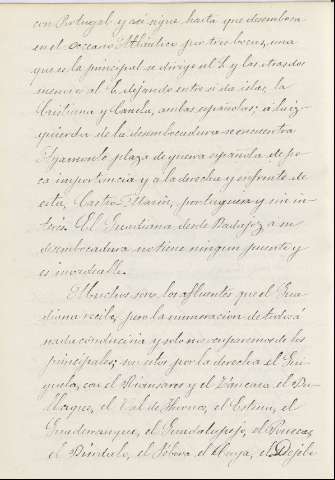 con Portugal y asi sigue hasta que desemboca
en el oceano Atlántico por tres bocas, una
que es la principal se dirige al S. y las otras dos
menores al E. dejando entre si da islas, la
Cristiana y Canela, ambas españolas; a la iz-
quierda de la desembocadura se encuentra
Ayamonte plaza de guerra española de po-
ca importancia y a la derecha y enfrente de
esta, Castro Marin, portuguesa y sin in-
terés. El Guardiana desde Badajoz a su
desembocadura no tiene ningun puente y
es invadeable.
Muchos son los afluentes que el Gua-
diana recibe, pero la enumeracion de todos á
nada conduciria y solo nos ocuparemos de los
principales; son estos por la derecha el Gi-
güela, con el Riansares y el Záncara, el Bu-
llaque, el Val de Hornos, el Estena, el
Guadarranque, el Guadalupejo, el Ruecas,
el Búrdalo, el Aljucen, el